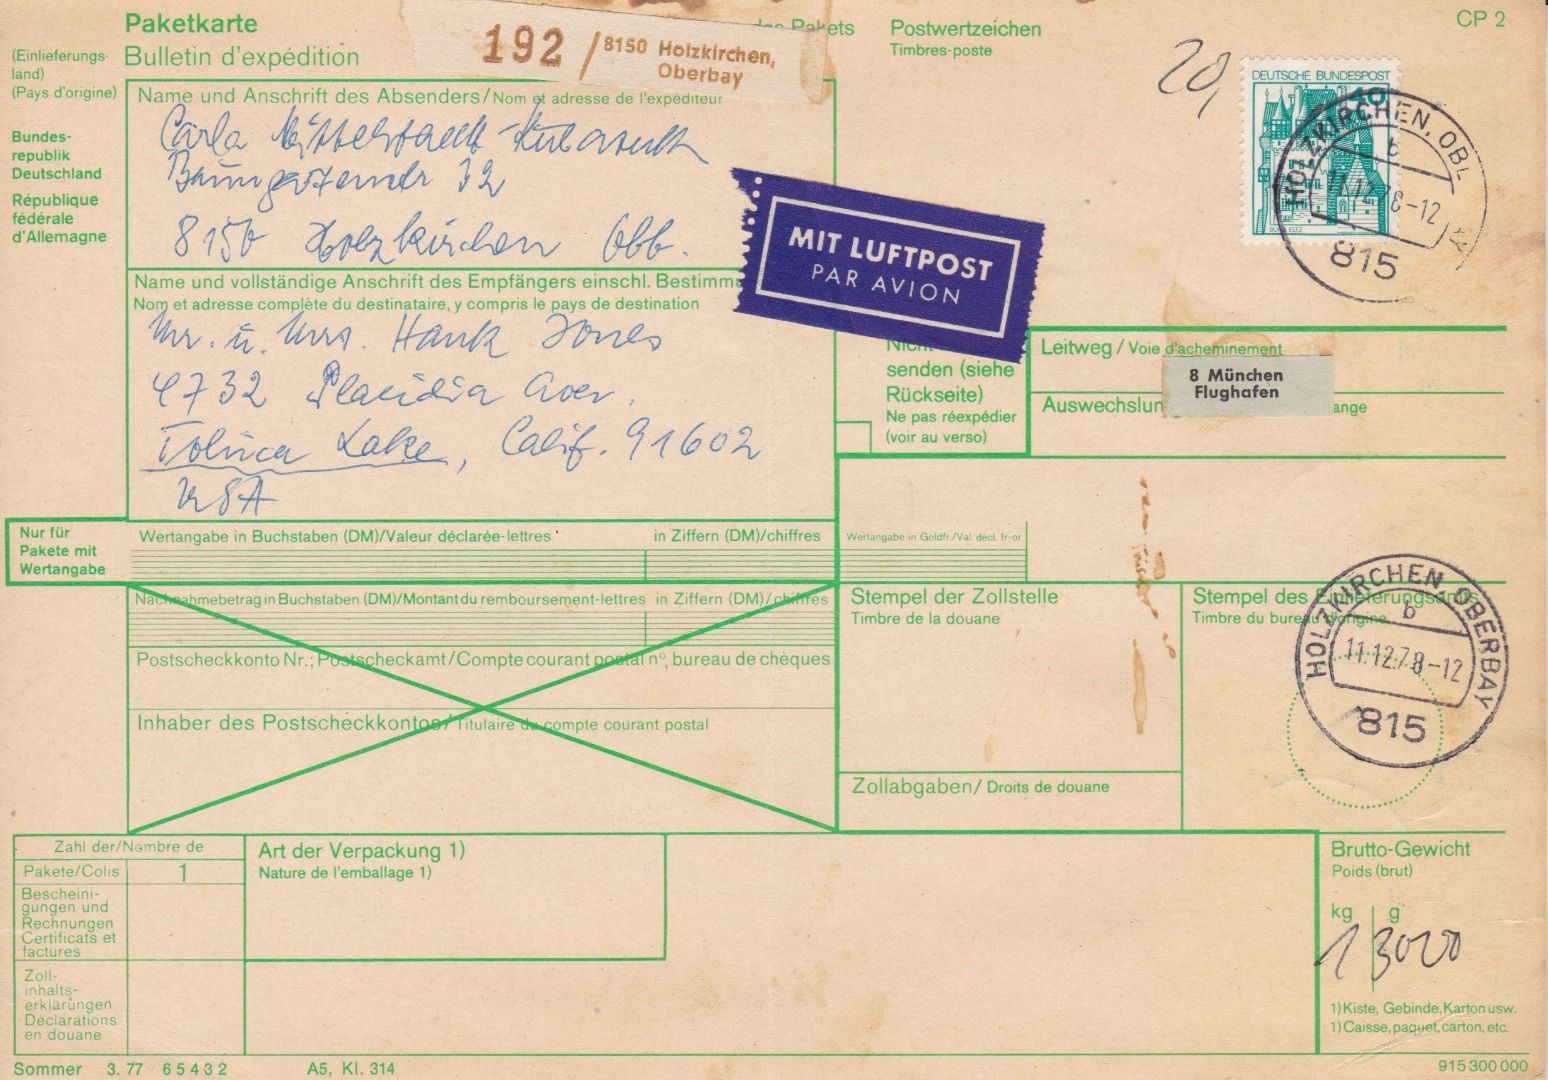 Paketkarte
Bulletin d'expédition
192 / 8150 Holzkirchen,
Oberbay
des Pakets
Postwertzeichen
Timbres-poste
CP 2
20,
(Einlieferungs-
land)
(Pays d'origine)
Bundes-
republik
Deutschland
République
fédérale
d'Allemagne
Name und Anschrift des Absenders/Nom et adresse de l'expéditeur
Carla
32
8150 Holzkirchen Obb.
DEUTSCHE BUNDESPOST
HOLZKIRCHEN, OBB
b
11.12.78-12
815
MIT LUFTPOST
PAR AVION
Name und vollständige Anschrift des Empfängers einschl. Bestimmu
Nom et adresse complète du destinataire, y compris le pays de destination
Mr. u. Mrs. Hank Jones
4732 Placidia Aver.
Toluca Lake, Calif. 91602
USA
Nicht
senden (siehe
Rückseite)
Ne pas réexpédier
(voir au verso)
Leitweg / Voie d'acheminement
8 München
Flughafen
Auswechslun ange
Nur für
Pakete mit
Wertangabe
Wertangabe in Buchstaben (DM)/Valeur déclarée-lettres in Ziffern (DM)/chiffres
Wertangabe in Goldfr./Val. décl. fr-or
Nachnahmebetrag in Buchstaben (DM)/Montant du remboursement-lettres in Ziffern (DM)/chiffres
Postscheckkonto Nr.; Postscheckamt/Compte courant postal nº, bureau de chèques
Inhaber des Postscheckkontos/Titulaire du compte courant postal
Stempel der Zollstelle
Timbre de la douane
Zollabgaben/Droits de douane
Stempel des Einlieferungsamts
Timbre du bureau d'origine
HOLZKIRCHEN, OBERBAY
b
11.12.78-12
815
Zahl der/Nombre de
Pakete/Colis 1
Bescheini-
gungen und
Rechnungen
Certificats et
factures
Zoll-
inhalts-
erklärungen
Déclarations
en douane
Art der Verpackung 1)
Nature de l'emballage 1)
Brutto-Gewicht
Poids (brut)
kg g
13000
1) Kiste, Gebinde, Karton usw.
1) Caisse, paquet, carton, etc.
Sommer 3. 77 6 5 4 3 2 A5, Kl. 314
915 300 000